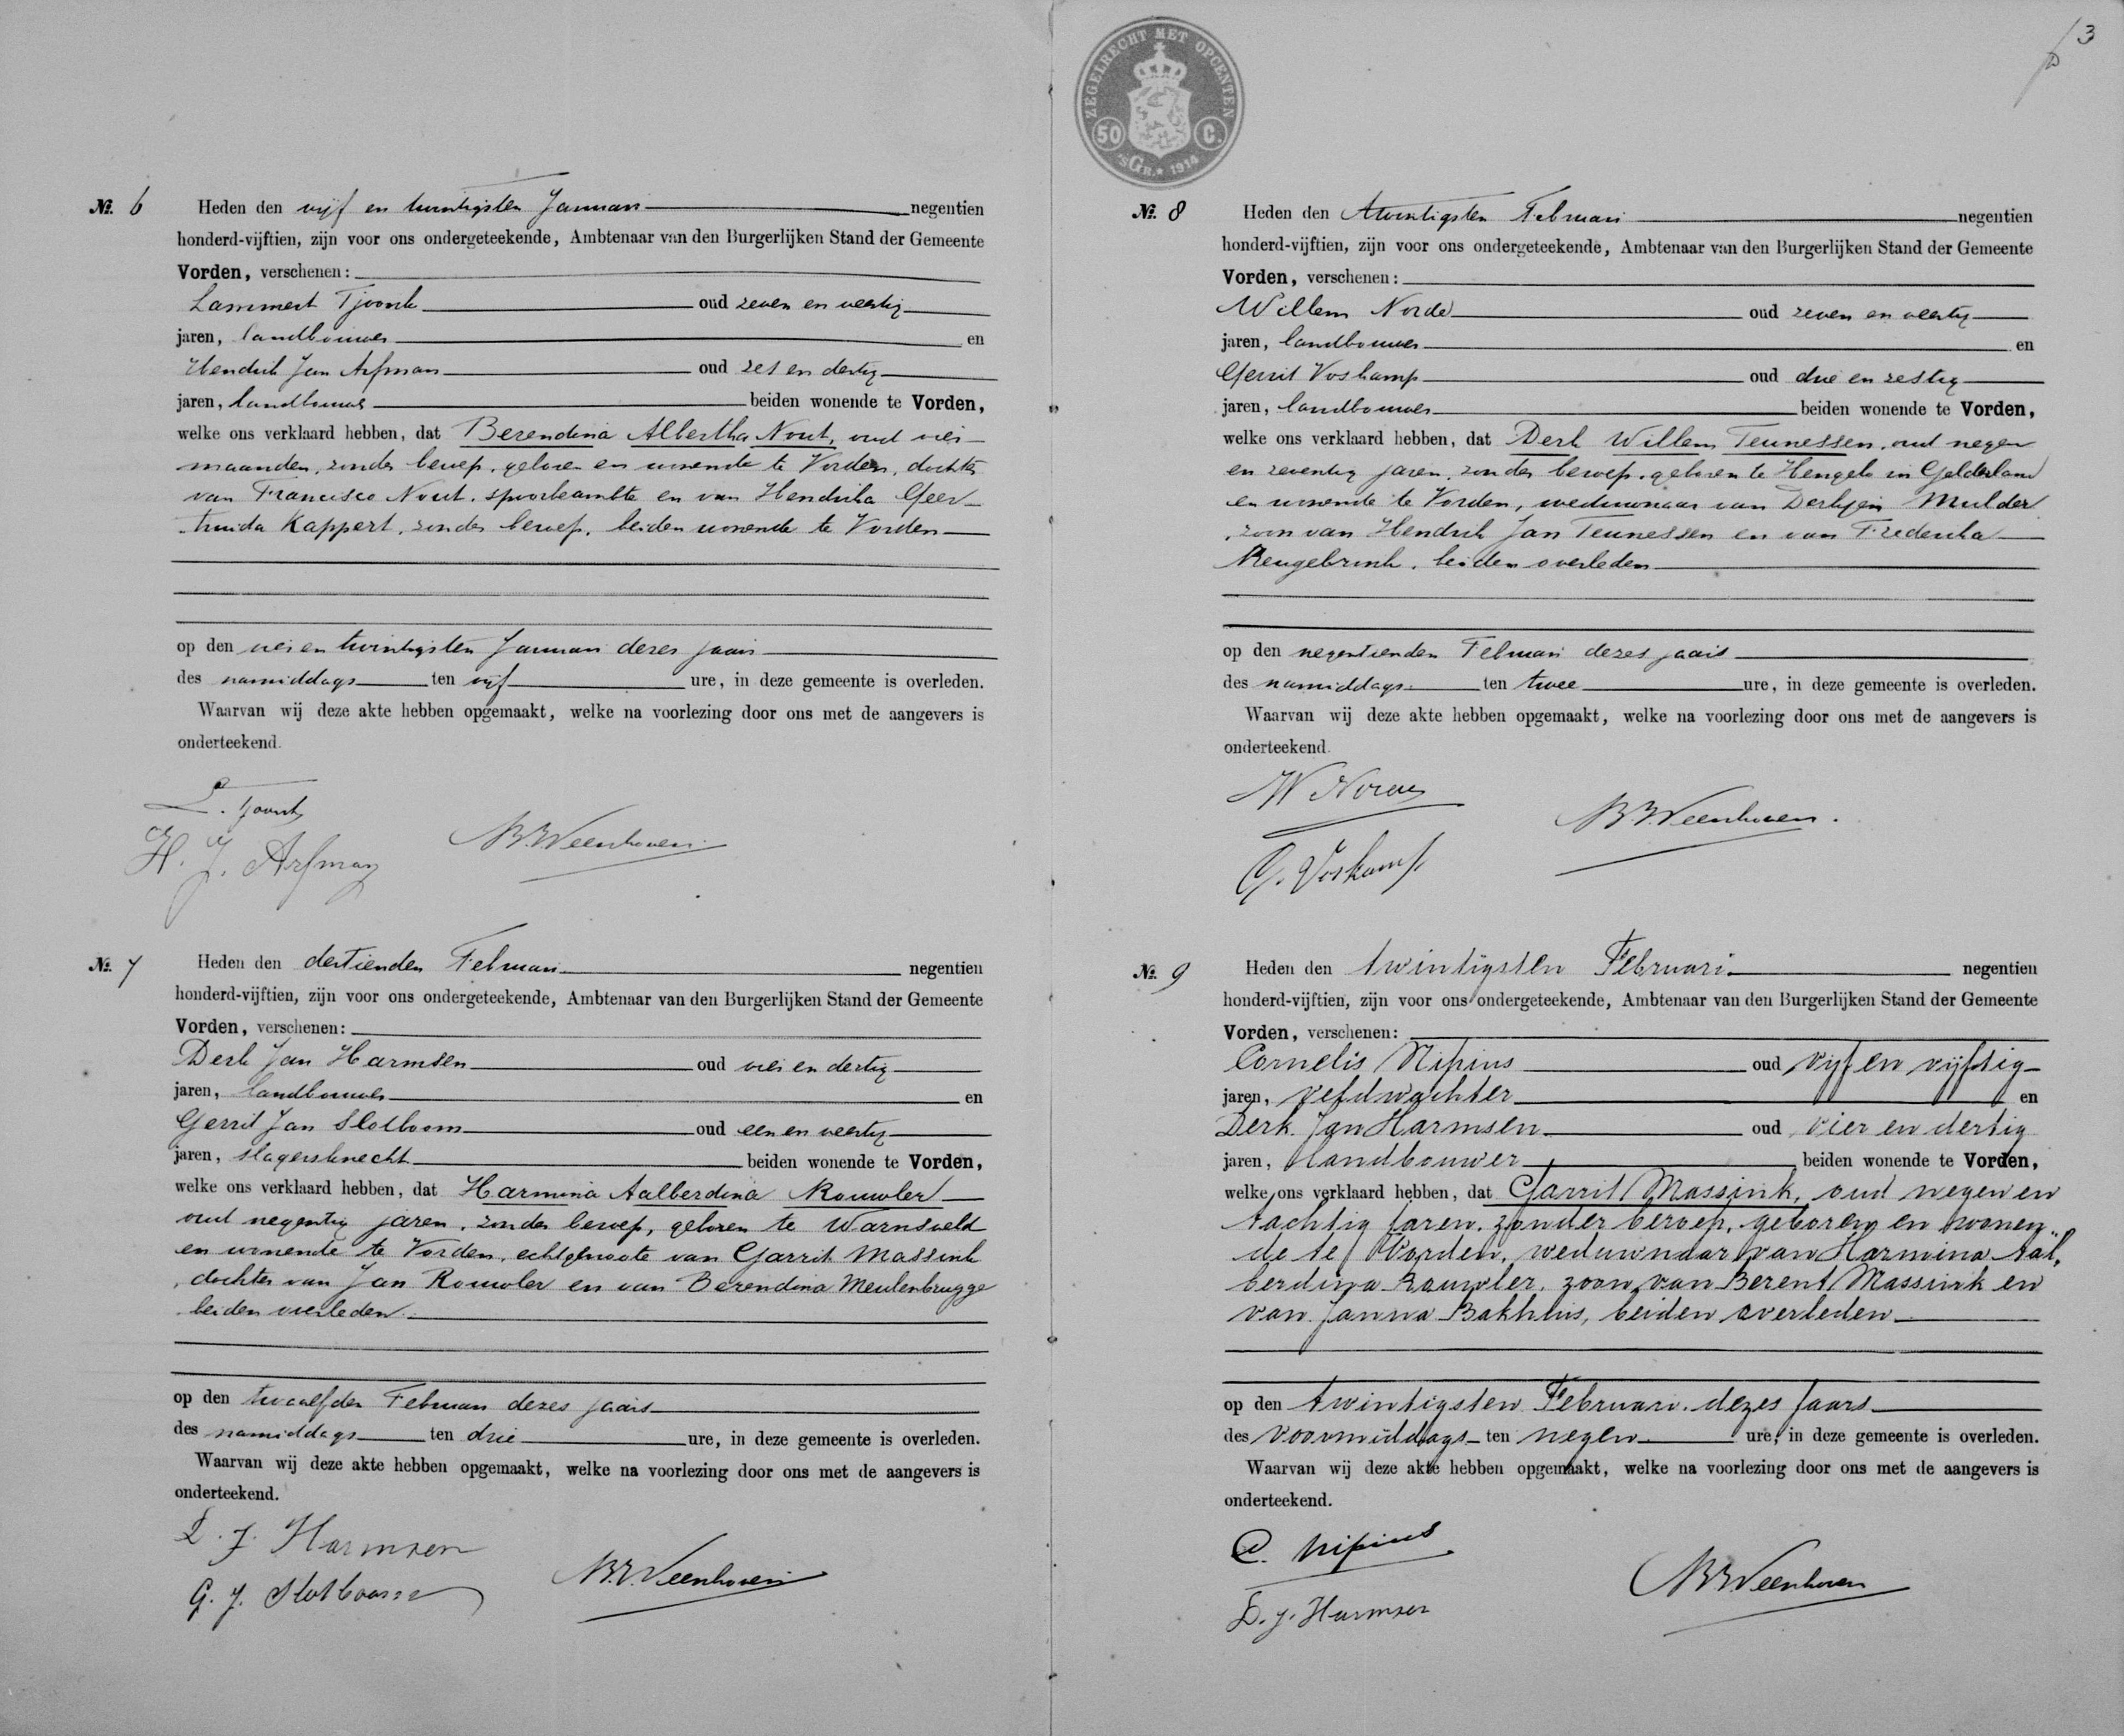 №. 6 Heden den vijf en twintigsten Januari negentien
honderd-vijftien, zijn voor ons ondergeteekende, Ambtenaar van den Burgerlijken Stand der Gemeente
Vorden, verschenen:
Lammert Tjoonk oud zeven en veertig
jaren, landbouwer en
Hendrik Jan Arfman oud zes en dertig
jaren, landbouwer beiden wonende te Vorden,
welke ons verklaard hebben, dat Berendina Albertha Nout, oud vier
maanden, zonder beroep, geboren en wonende te Vorden, dochter
van Francisco Nout, spoorbeambte en van Hendrika Geer-
truida Kappert, zonder beroep, beiden wonende te Vorden
op den vier en twintigsten Januari dezes jaars
des namiddags ten vijf ure, in deze gemeente is overleden.
Waarvan wij deze akte hebben opgemaakt, welke na voorlezing door ons met de aangevers is
onderteekend.
L. Tjoonk
H. J. Arfman
Weenhoven
№. 7 Heden den dertienden Februari negentien
honderd-vijftien, zijn voor ons ondergeteekende, Ambtenaar van den Burgerlijken Stand der Gemeente
Vorden, verschenen:
Derk Jan Harmsen oud vier en dertig
jaren, landbouwer en
Gerrit Jan Slotboom oud een en veertig
jaren, slagersknecht beiden wonende te Vorden,
welke ons verklaard hebben, dat Harmina Aalberdina Rouwler
oud negentig jaren, zonder beroep, geboren te Warnsveld
en wonende te Vorden, echtgenoote van Garrit Massink
, dochter van Jan Rouwler en van Berendina Meulenbrugge
beiden overleden.
op den twaalfden Februari dezes jaars
des namiddags ten drie ure, in deze gemeente is overleden.
Waarvan wij deze akte hebben opgemaakt, welke na voorlezing door ons met de aangevers is
onderteekend.
D. J. Harmsen
G. J. Slotboom
Weenhoven
ZEGELRECHT MET OPCENTEN
50 C.
'sGr. * 1914
3
№. 8 Heden den twintigsten Februari negentien
honderd-vijftien, zijn voor ons ondergeteekende, Ambtenaar van den Burgerlijken Stand der Gemeente
Vorden, verschenen:
Willem Norde oud zeven en veertig
jaren, landbouwer en
Gerrit Voskamp oud drie en zestig
jaren, landbouwer beiden wonende te Vorden,
welke ons verklaard hebben, dat Derk Willem Teunessen, oud negen
en zeventig jaren, zonder beroep, geboren te Hengelo in Gelderland
en wonende te Vorden, weduwnaar van Derkjen Mulder
, zoon van Hendrik Jan Teunessen en van Frederika
Mengebrink, beiden overleden
op den negentienden Februari dezes jaars
des namiddags ten twee ure, in deze gemeente is overleden.
Waarvan wij deze akte hebben opgemaakt, welke na voorlezing door ons met de aangevers is
onderteekend.
W Norde
G. Voskamp
Weenhoven.
№. 9 Heden den twintigsten Februari negentien
honderd-vijftien, zijn voor ons ondergeteekende, Ambtenaar van den Burgerlijken Stand der Gemeente
Vorden, verschenen:
Cornelis Nipius oud vijf en vijftig
jaren, veldwachter en
Derk Jan Harmsen oud vier en dertig
jaren, landbouwer beiden wonende te Vorden,
welke ons verklaard hebben, dat Garrit Massink, oud negen en
tachtig jaren, zonder beroep, geboren en wonen„
de te Vorden, weduwnaar van Harmina Aal„
berdina Rouwler, zoon van Berent Massink en
van Janna Bakhuis, beiden overleden
op den twintigsten Februari dezes jaars
des voormiddags ten negen ure, in deze gemeente is overleden.
Waarvan wij deze akte hebben opgemaakt, welke na voorlezing door ons met de aangevers is
onderteekend.
C. Nipius
D. J. Harmsen
Weenhoven